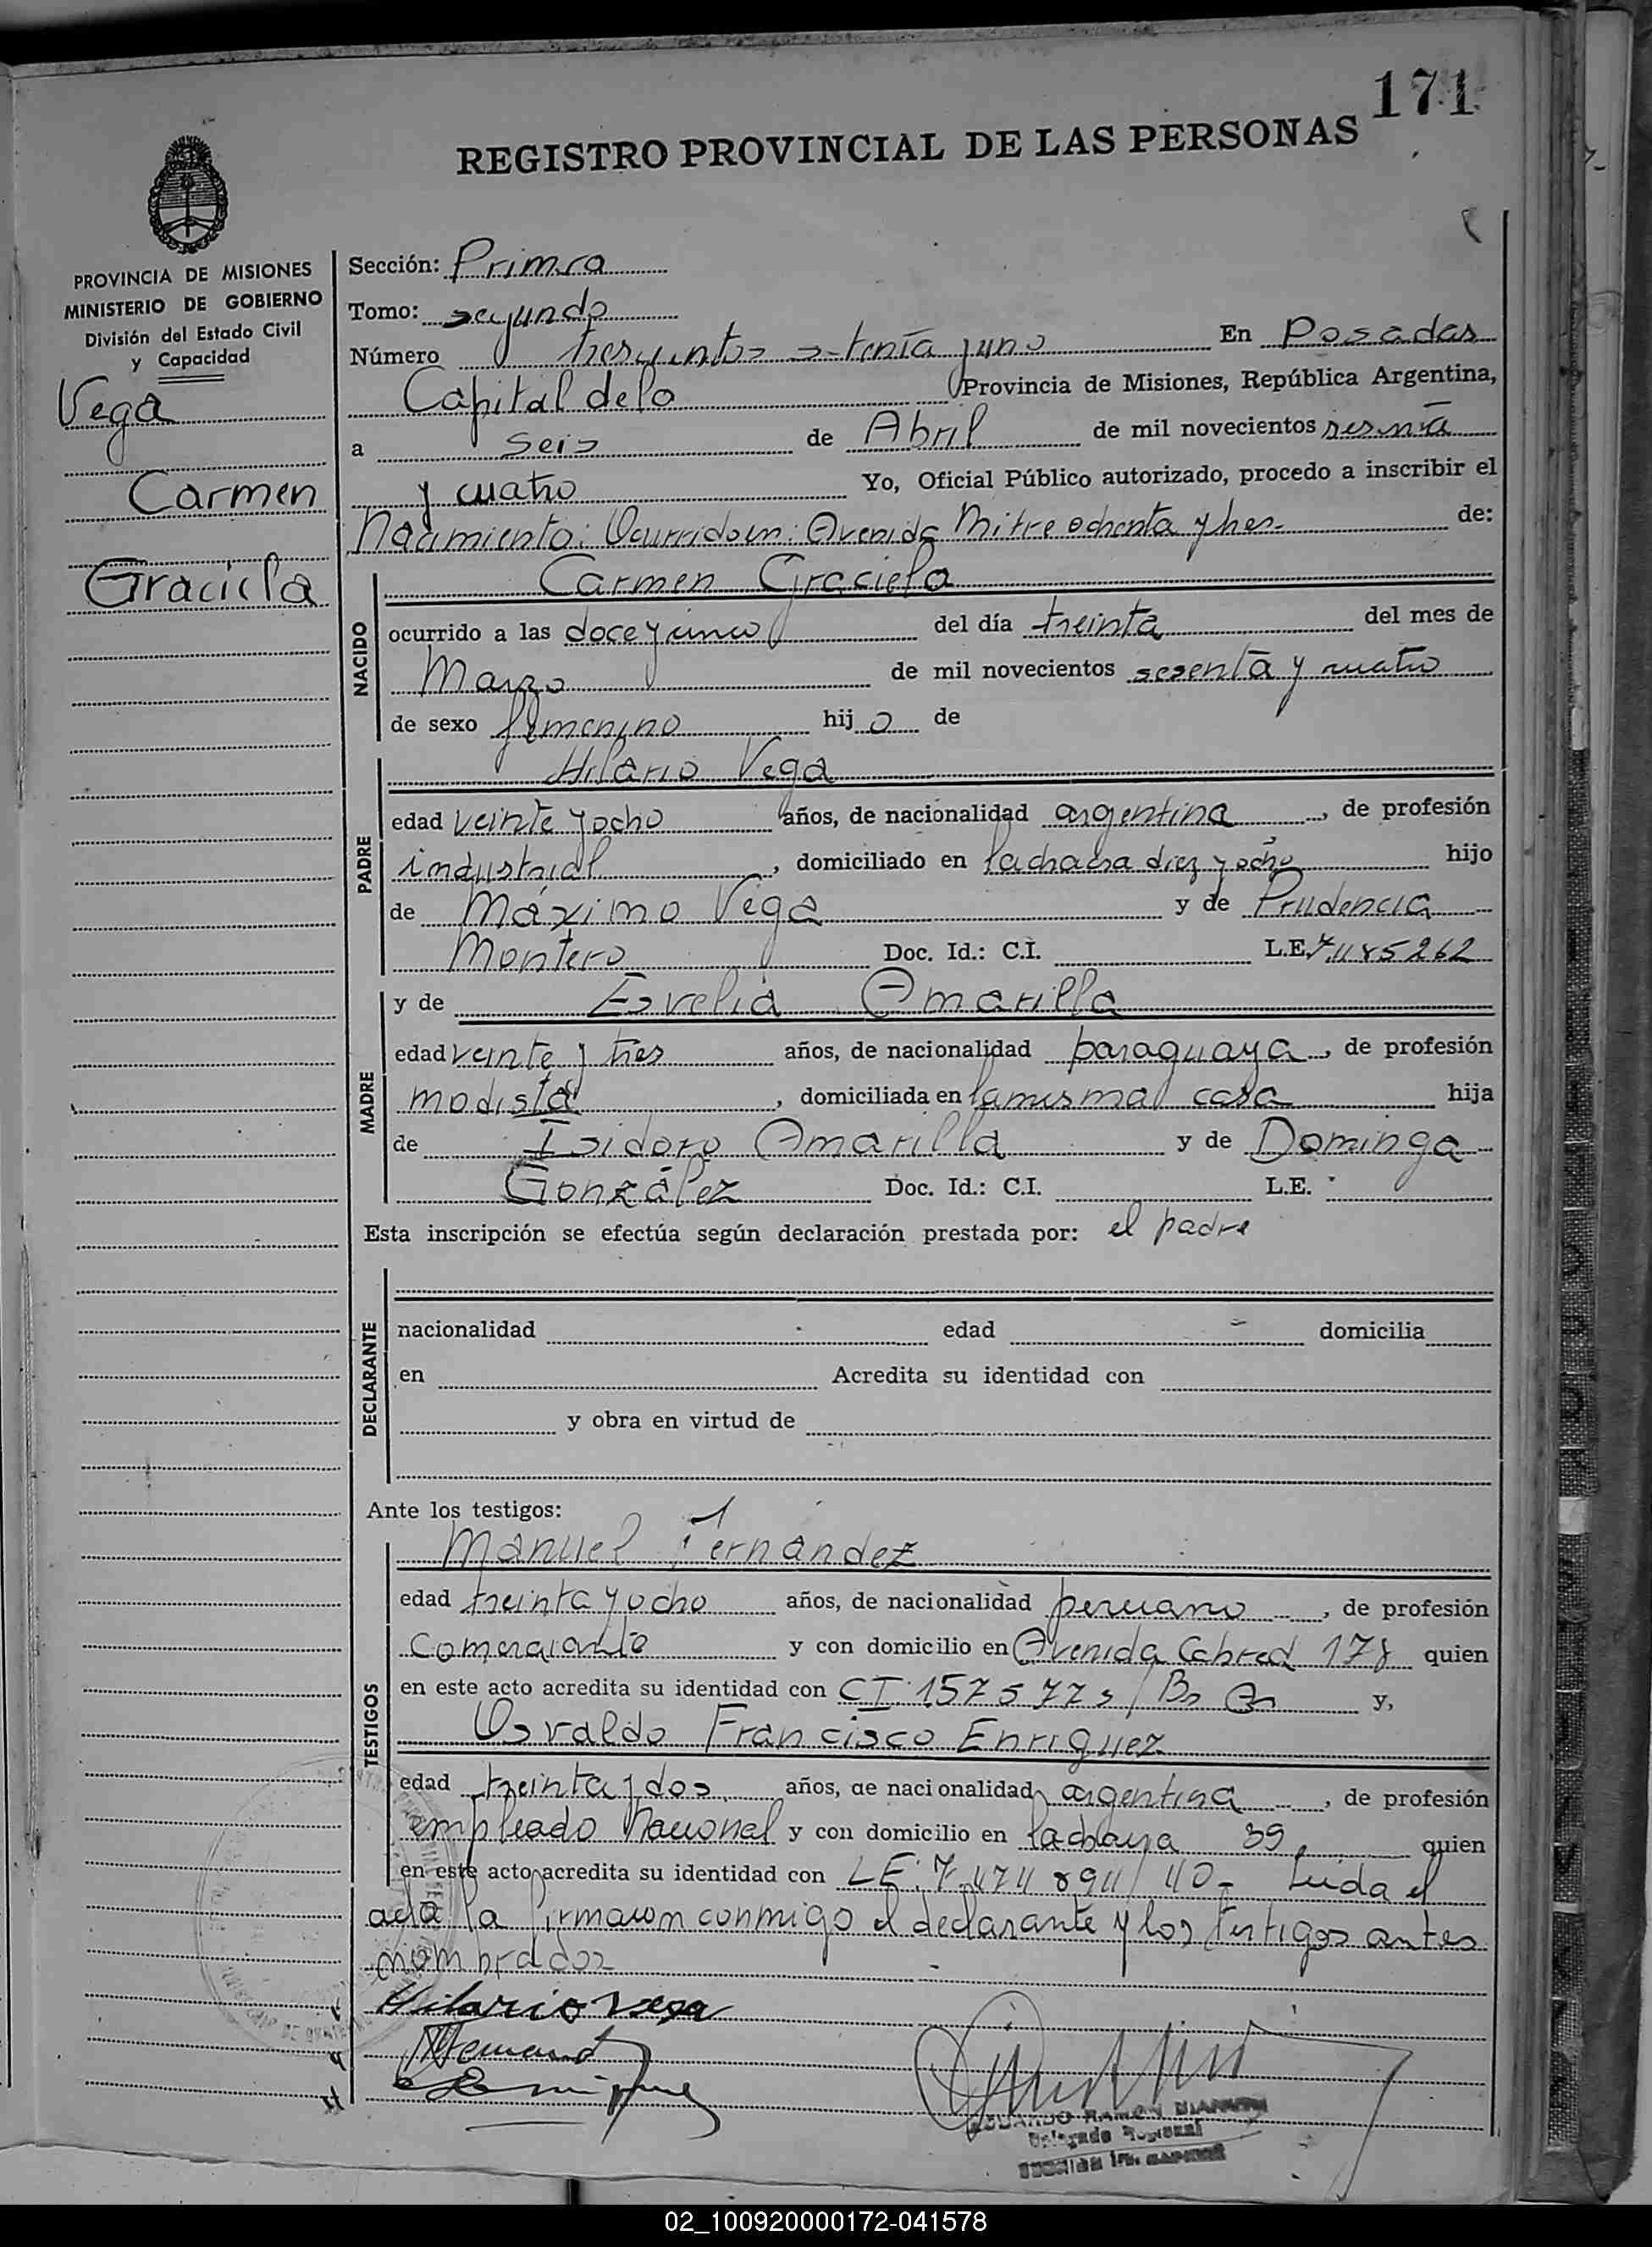 171
REGISTRO PROVINCIAL DE LAS PERSONAS
PROVINCIA DE MISIONES
MINISTERIO DE GOBIERNO
División del Estado Civil
y Capacidad
Vega
Carmen
Graciela
Sección: Primera
Tomo: segundo
Número trescientos setenta y uno En Posadas
Capital de la Provincia de Misiones, República Argentina,
a seis de Abril de mil novecientos sesenta
y cuatro Yo, Oficial Público autorizado, procedo a inscribir el
Nacimiento: Ocurrido en: Avenida Mitre ochenta y tres- de:
NACIDO
Carmen Graciela
ocurrido a las doce y cinco del día treinta del mes de
Marzo de mil novecientos sesenta y cuatro
de sexo femenino hijo de
PADRE
Hilario Vega
edad veinte y ocho años, de nacionalidad argentina, de profesión
industrial, domiciliado en la chacra diez y ocho hijo
de Máximo Vega y de Prudencia
Montero Doc. Id.: C.I. L.E.
MADRE
y de Esvelia Amarilla
edad veinte y tres años, de nacionalidad paraguaya, de profesión
modista, domiciliada en la misma casa hija
de Isidoro Amarilla y de Dominga
González Doc. Id.: C.I. L.E.
Esta inscripción se efectúa según declaración prestada por: el padre
DECLARANTE
nacionalidad edad domicilia
en Acredita su identidad con
y obra en virtud de
Ante los testigos:
TESTIGOS
Manuel Fernández
edad treinta y ocho años, de nacionalidad peruano, de profesión
Comerciante y con domicilio en Avenida Cabred 178 quien
en este acto acredita su identidad con CI Bs As y,
Osvaldo Francisco Enriquez
edad treinta y dos años, de nacionalidad argentina, de profesión
empleado Nacional y con domicilio en la chacra 39 quien
en este acto acredita su identidad con LE: Leida el
acta la firmaron conmigo el declarante y los testigos antes
nombrados
Hilario Vega
EDUARDO RAMON
Delegado Regional
02_100920000172-041578